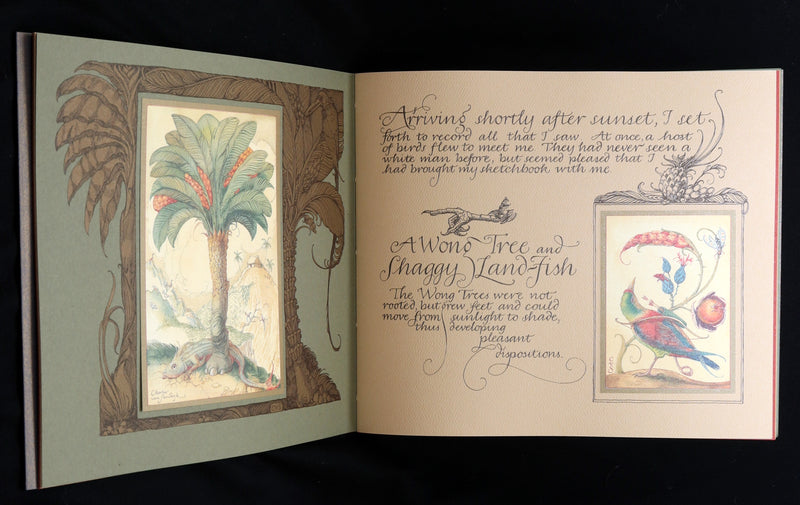 Arriving shortly after sunset, I set
forth to record all that I saw At once, a host
of birds flew to meet me. They had never seen a
white man before, but seemed pleased that I
had brought my sketchbook with me.
A Wong Tree and
Shaggy Land-Fish
The Wong Trees were not
rooted, but grew feet and could
move from sunlight to shade,
thus developing
pleasant
dispositions.